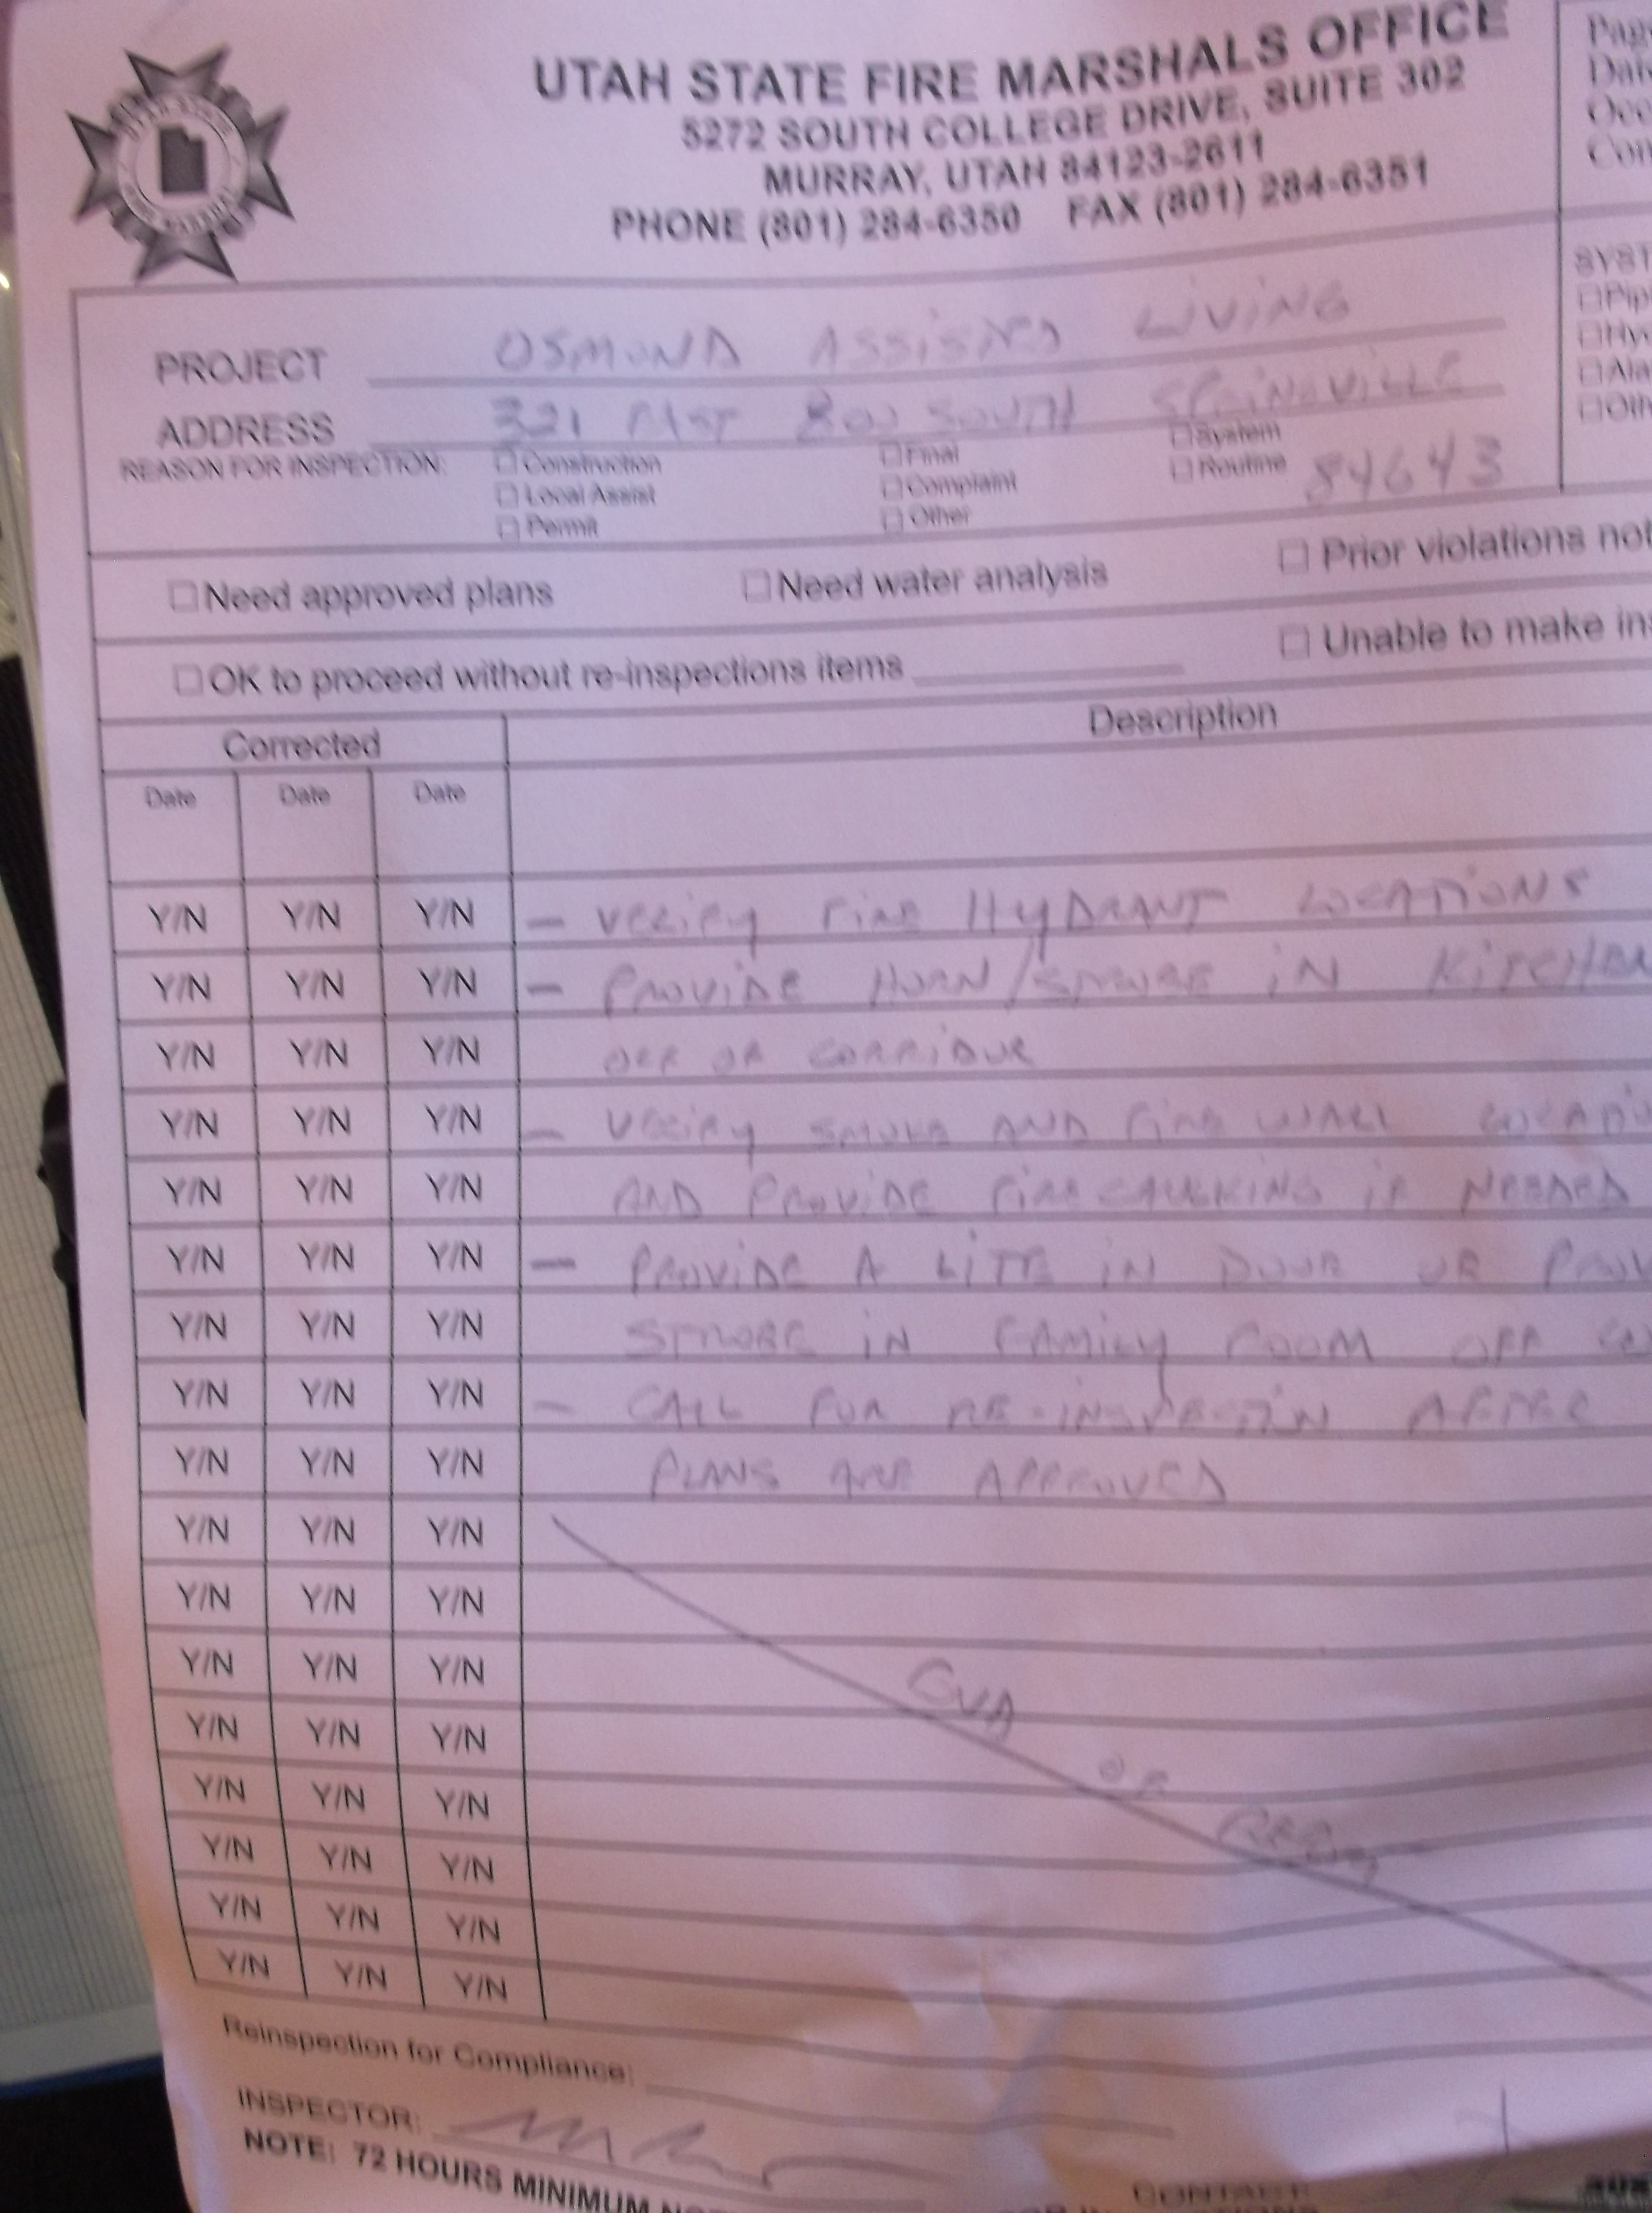 UTAH STATE FIRE MARSHALS OFFICE
5272 SOUTH COLLEGE DRIVE, SUITE 302
MURRAY, UTAH 84123-2611
PHONE (801) 284-6350 FAX (801) 284-6351
Pag
Dat
Occ
Con
SYST
□Pip
□Hy
□Ala
□Oth
PROJECT OSMOND ASSISTED LIVING
ADDRESS 321 EAST 800 SOUTH SPRINGVILLE
REASON FOR INSPECTION: □ Construction □ Final □ System
□ Local Assist □ Complaint □ Routine 84643
□ Permit □ Other
□ Need approved plans □ Need water analysis □ Prior violations not
□ OK to proceed without re-inspections items □ Unable to make ins
Corrected Description
Date Date Date
Y/N Y/N Y/N - VERIFY FIRE HYDRANT LOCATIONS
Y/N Y/N Y/N - PROVIDE HORN/STROBE IN KITCHEN
Y/N Y/N Y/N OFF OF CORRIDOR
Y/N Y/N Y/N - VERIFY SMOKE AND FIRE WALL LOCATI
Y/N Y/N Y/N AND PROVIDE FIRE CAULKING IF NEEDED
Y/N Y/N Y/N - PROVIDE A LITE IN DOOR OR PROV
Y/N Y/N Y/N STROBE IN FAMILY ROOM OFF CO
Y/N Y/N Y/N - CALL FOR RE-INSPECTIN AFTER
Y/N Y/N Y/N PLANS ARE APPROVED
Y/N Y/N Y/N
Y/N Y/N Y/N
Y/N Y/N Y/N
Y/N Y/N Y/N
Y/N Y/N Y/N OF
Y/N Y/N Y/N
Y/N Y/N Y/N
Y/N Y/N Y/N
Reinspection for Compliance:
INSPECTOR:
NOTE: 72 HOURS MINIMUM
CONTACT: